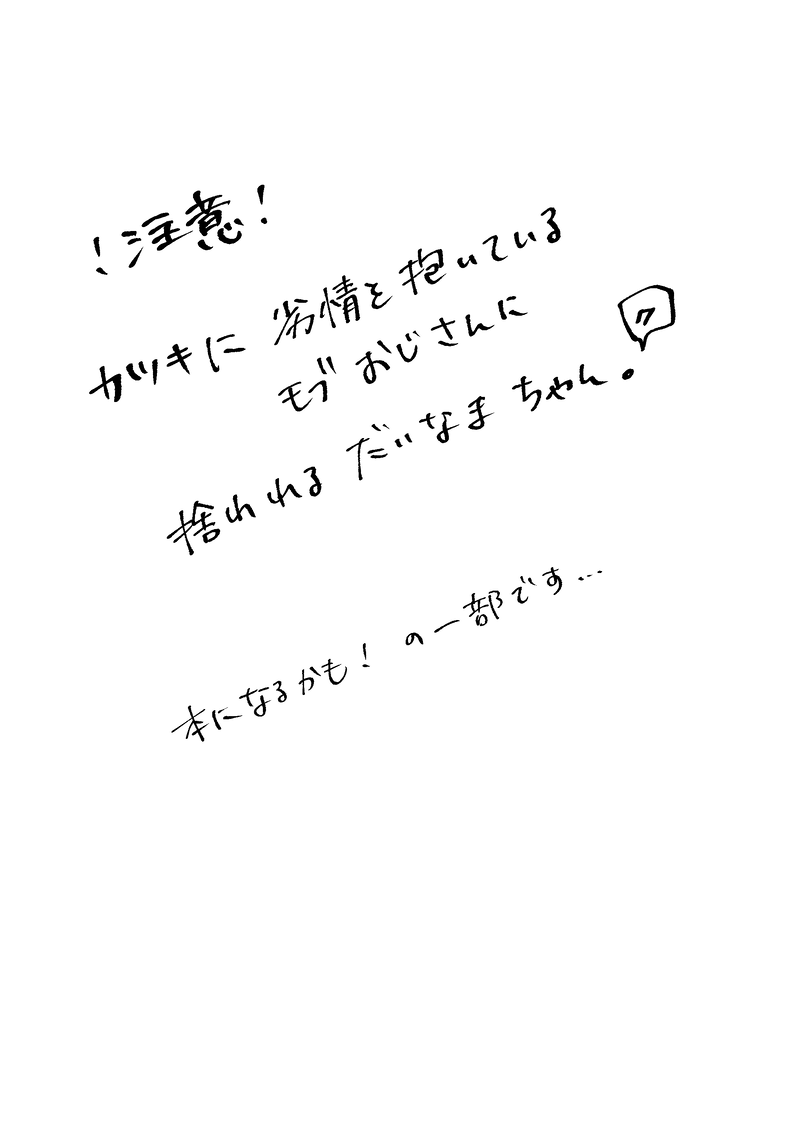 ！注意！
カツキに劣情を抱いている
モブおじさんに
捨われる だいなまちゃん。
本になるかも！の一部です…